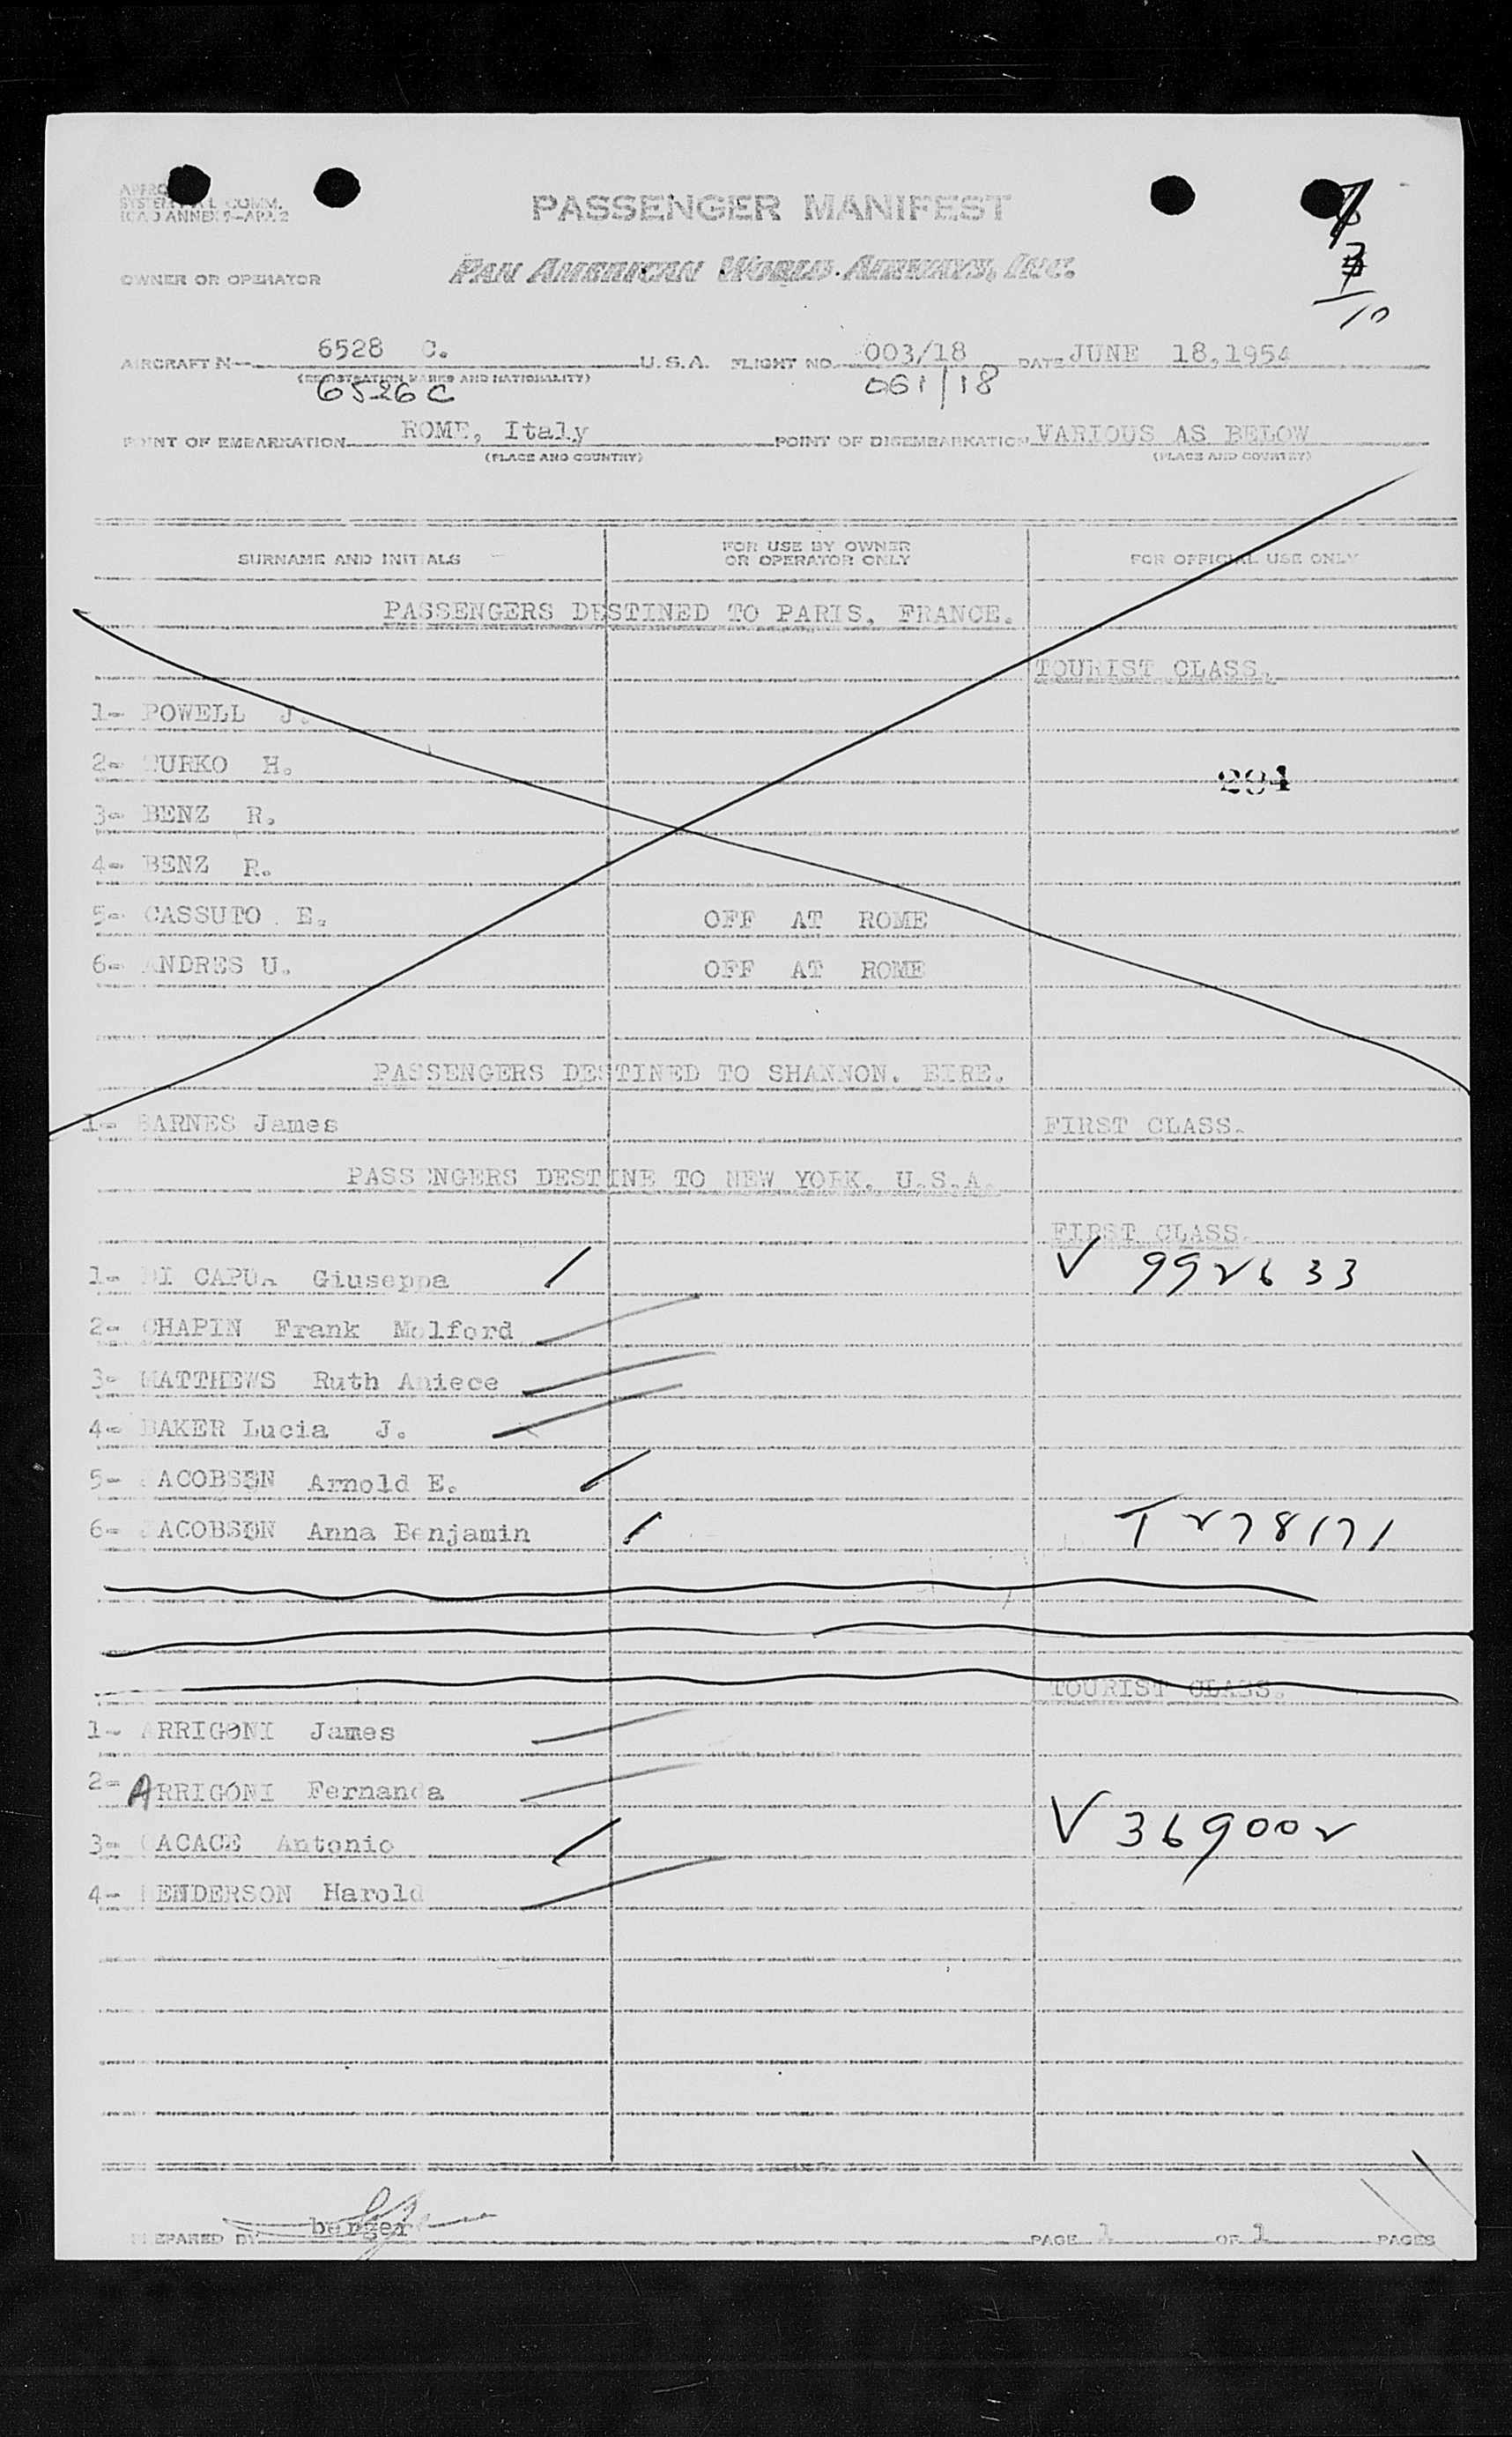 SYSTEM COMM.
ICAO ANNEX 9-APP. 2
PASSENGER MANIFEST
OWNER OR OPERATOR PAN AMERICAN WORLD AIRWAYS, INC.
7
3
10
AIRCRAFT N- 6528 C. U.S.A. FLIGHT NO. 003/18 DATE JUNE 18,1954
(REGISTRATION MARKS AND NATIONALITY)
6526 C 061/18
POINT OF EMBARKATION ROME, Italy POINT OF DISEMBARKATION VARIOUS AS BELOW
(PLACE AND COUNTRY) (PLACE AND COUNTRY)
SURNAME AND INITIALS FOR USE BY OWNER OR OPERATOR ONLY FOR OFFICIAL USE ONLY
PASSENGERS DESTINED TO PARIS, FRANCE.
TOURIST CLASS.
1- POWELL J.
2- TURKO H.
294
3- BENZ R.
4- BENZ R.
5- CASSUTO E. OFF AT ROME
6- ANDRES U. OFF AT ROME
PASSENGERS DESTINED TO SHANNON. EIRE.
1- BARNES James FIRST CLASS.
PASSENGERS DESTINE TO NEW YORK. U.S.A.
FIRST CLASS.
1- DI CAPUA Giuseppa V 992633
2- CHAPIN Frank Molford
3- MATTHEWS Ruth Aniece
4- BAKER Lucia J.
5- JACOBSEN Arnold E.
6- JACOBSEN Anna Benjamin T278171
TOURIST CLASS.
1- ARRIGONI James
2- ARRIGONI Fernanda
3- CACACE Antonio V 369002
4- HENDERSON Harold
PREPARED BY berger PAGE 1 OF 1 PAGES